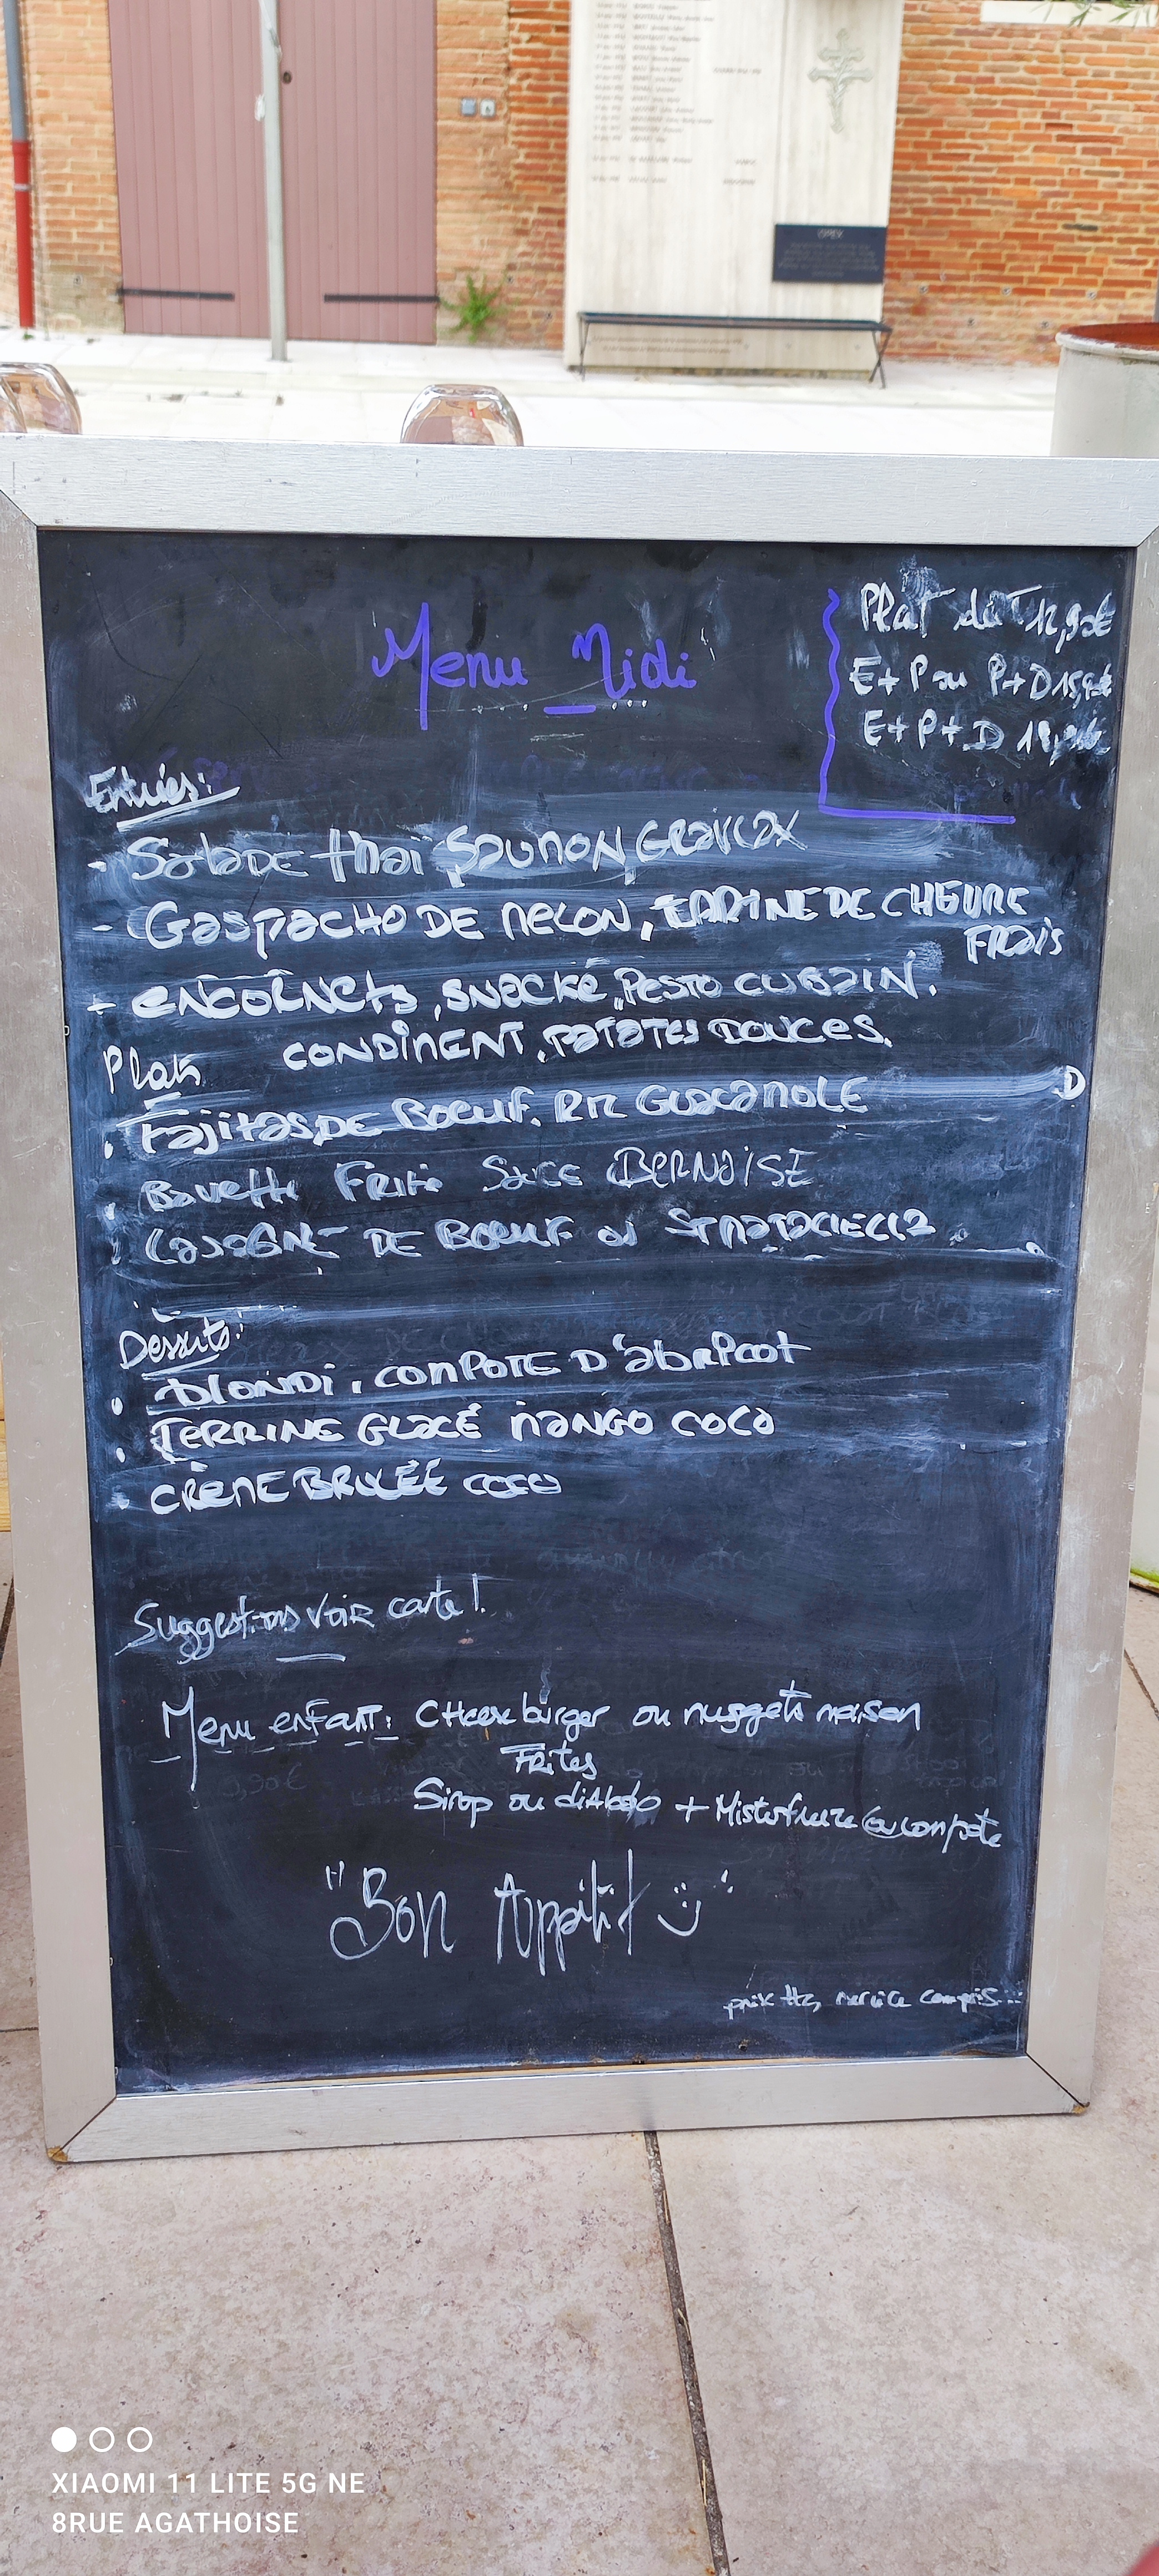 Menu Midi
Plat du J 12,90€
E+P ou P+D 15,9€
E+P+D
Entrées:
- Salade thaï Saumon Gravlax
- Gaspacho de melon, tartine de chèvre
frais
- encornets, snacké, Pesto cubain.
condiment, patates douces.
Plats
. Fajitas de Boeuf. Riz Guacamole
. Bavette Frites Sauce Bernaise
. Lasagne de Boeuf ou Stratacciella.
Desserts:
. blondi, compote d'abricot
. Terrine glacé mango coco
. crème brulée coco
Suggestions voir carte!
Menu enfant: Cheese burger ou nuggets maison
Frites
Sirop ou diabolo + Misterfreeze ou compote
"Bon Appétit"
prix ttc, service compris...
XIAOMI 11 LITE 5G NE
8RUE AGATHOISE